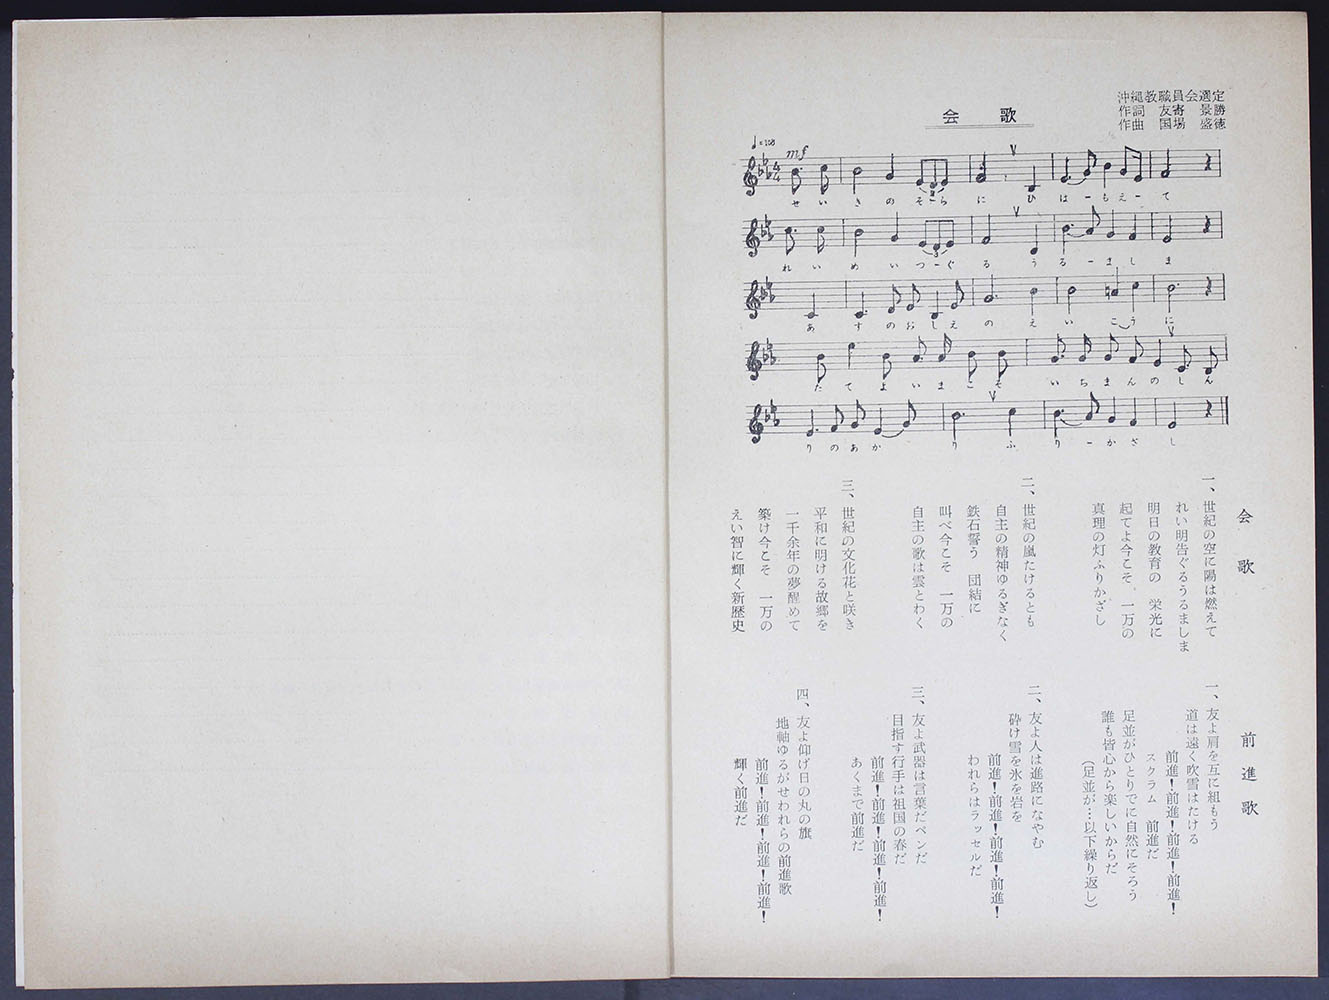 会歌
沖縄教職員会選定
作詞 友寄景勝
作曲 国場盛徳
♩=108
mf
せいきのそーらにひはーもえーて
れいめいつーぐるうるーましま
あすのおしえのえいこうに
たてよいまこそいちまんのしん
りのあかりふりーかざし
会歌
一、世紀の空に陽は燃えて
れい明告ぐるうるましま
明日の教育の 栄光に
起てよ今こそ 一万の
真理の灯ふりかざし
二、世紀の嵐たけるとも
自主の精神ゆるぎなく
鉄石誓う 団結に
叫べ今こそ 一万の
自主の歌は雲とわく
三、世紀の文化花と咲き
平和に明ける故郷を
一千余年の夢醒めて
築け今こそ 一万の
えい智に輝く新歴史
前進歌
一、友よ肩を互に組もう
道は遠く吹雪はたける
前進!前進!前進!前進!
スクラム 前進だ
足並がひとりでに自然にそろう
誰も皆心から楽しいからだ
(足並が…以下繰り返し)
二、友よ人は進路になやむ
砕け雪を氷を岩を
前進!前進!前進!前進!
われらはラッセルだ
三、友よ武器は言葉だペンだ
目指す行手は祖国の春だ
前進!前進!前進!前進!
あくまで前進だ
四、友よ仰げ日の丸の旗
地軸ゆるがせわれらの前進歌
前進!前進!前進!前進!
輝く前進だ